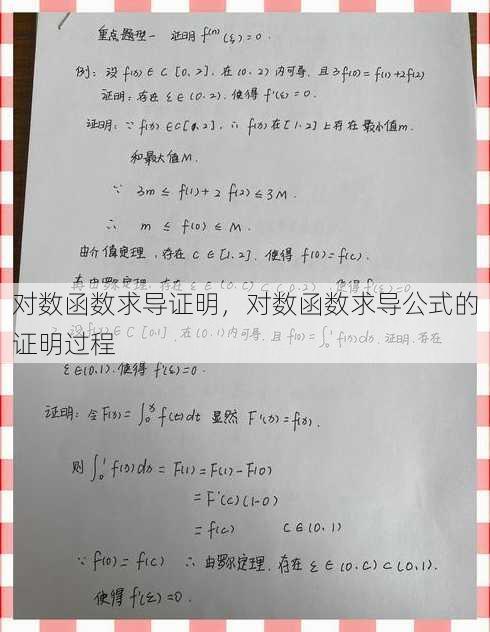 重点题型一 证明 f⁽ⁿ⁾(ξ)=0.
例: 设 f(x) ∈ C [0,2], 在 (0,2) 内可导, 且 3f(0) = f(1)+2f(2)
证明: 存在 ξ ∈ (0,2), 使得 f'(ξ) = 0.
证明: ∵ f(x) ∈ C[0,2], ∴ f(x) 在 [1,2] 上存在最小值m.
和最大值M.
∵ 3m ≤ f(1)+2 f(2) ≤ 3M.
∴ m ≤ f(0) ≤ M.
由介值定理, 存在 C ∈ [1,2], 使得 f(0)=f(c).
再由罗尔定理, 存在 ξ ∈ (0,c) ⊂ (0,2), 使得 f'(ξ)=0
对数函数求导证明，对数函数求导公式的
设 f(x) ∈ C [0,1], 在 (0,1) 内可导, 且 f(0) = ∫₀¹ f(x)dx, 证明: 存在
证明过程
ξ ∈ (0,1), 使得 f'(ξ)=0.
证明: 令 F(x) = ∫₀ˣ f(t)dt 显然 F'(x) = f(x).
则 ∫₀¹ f(x)dx = F(1) = F(1)-F(0)
= F'(c)(1-0)
= f(c) C ∈ (0,1)
∵ f(0) = f(c) ∴ 由罗尔定理, 存在 ξ ∈ (0,c) ⊂ (0,1).
使得 f'(ξ) = 0.